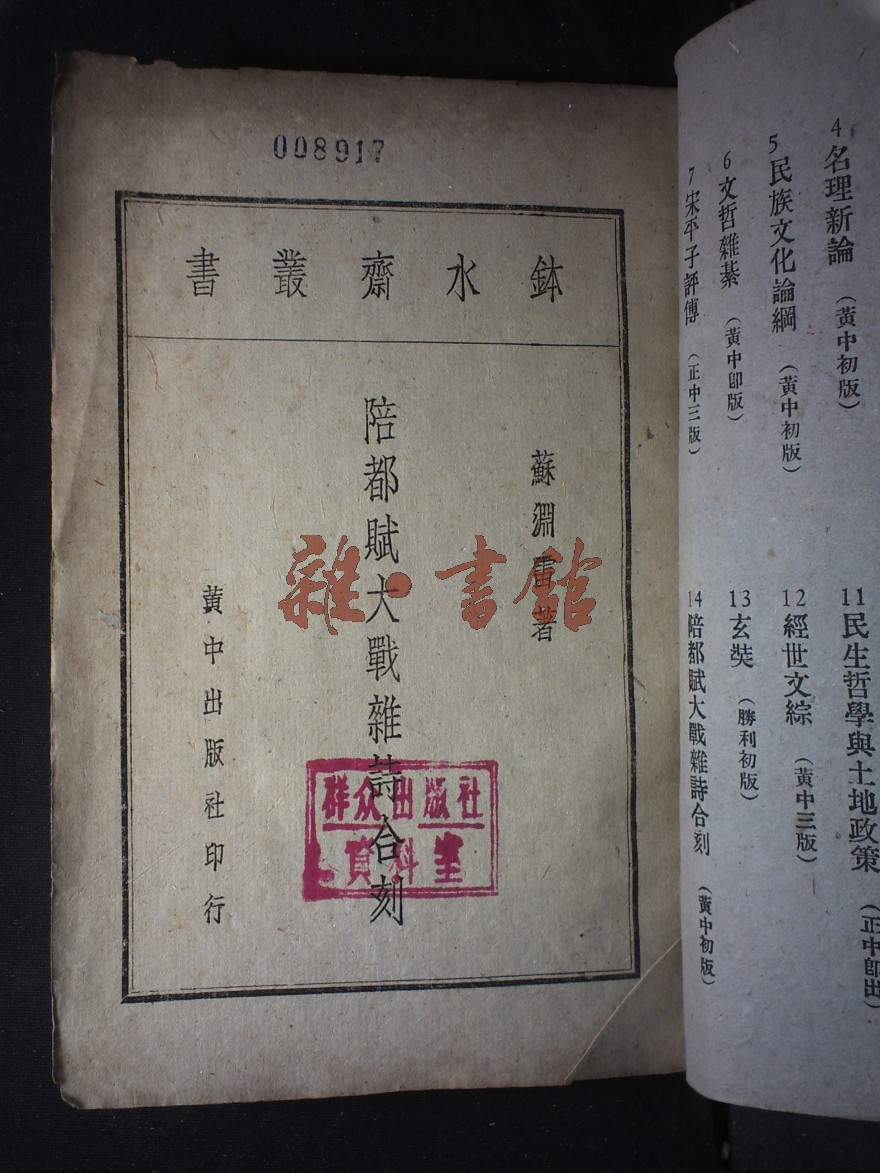 008917
書叢齋水鉢
蘇淵雷著
陪都賦大戰雜詩合刻
黃中出版社印行
群众出版社
資料室
雜·書館
4 名理新論 (黃中初版)
5 民族文化論綱 (黃中初版)
6 文哲雜綦 (黃中卽版)
7 宋平子評傳 (正中三版)
11 民生哲學與土地政策 (正中卽出)
12 經世文綜 (黃中三版)
13 玄奘 (勝利初版)
14 陪都賦大戰雜詩合刻 (黃中初版)